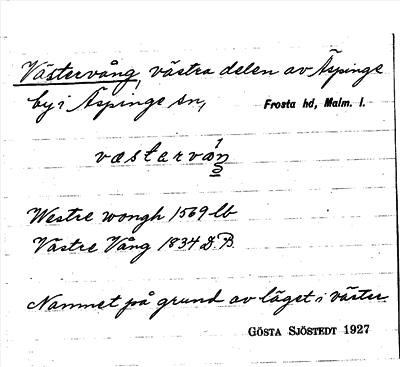 Västervång, västra delen av Äspinge
by i Äspinge sn, Frosta hd, Malm. l.
Westre wongh 1569 lb
Västre Vång 1834 D.B.
Namnet på grund av läget i väster
GÖSTA SJÖSTEDT 1927